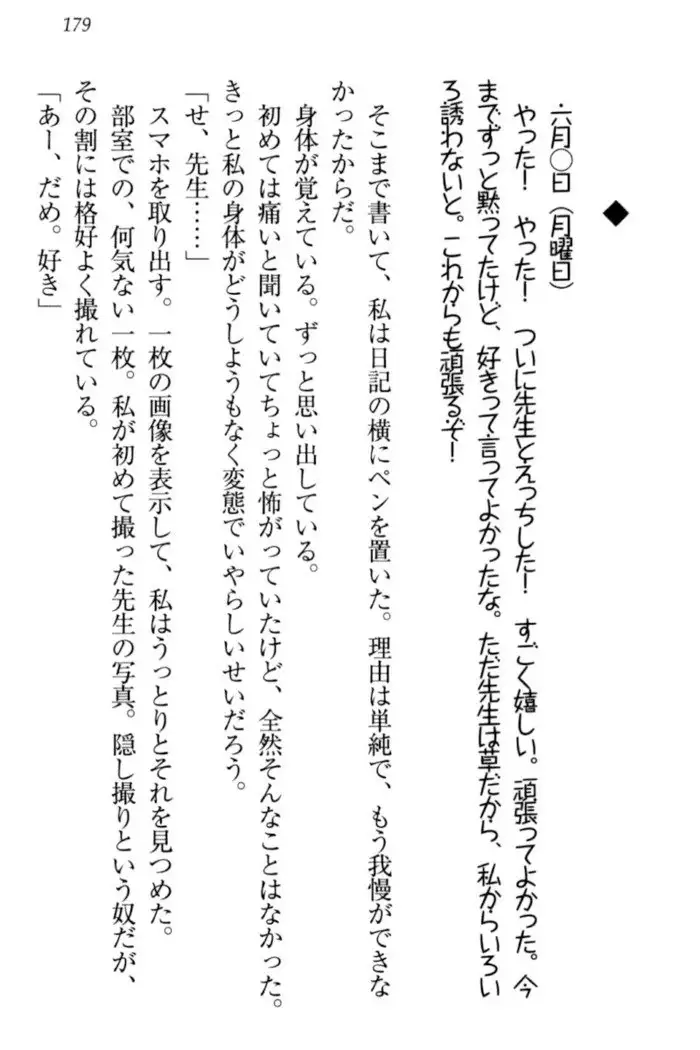 179
◆
六月〇日（月曜日）
やった！　やった！　ついに先生とえっちした！　すごく嬉しい。頑張ってよかった。今
までずっと黙ってたけど、好きって言ってよかったな。ただ先生は草だから、私からいろい
ろ誘わないと。これからも頑張るぞ！
そこまで書いて、私は日記の横にペンを置いた。理由は単純で、もう我慢ができな
かったからだ。
身体が覚えている。ずっと思い出している。
初めては痛いと聞いていてちょっと怖がっていたけど、全然そんなことはなかった。
きっと私の身体がどうしようもなく変態でいやらしいせいだろう。
「せ、先生……」
スマホを取り出す。一枚の画像を表示して、私はうっとりとそれを見つめた。
部室での、何気ない一枚。私が初めて撮った先生の写真。隠し撮りという奴だが、
その割には格好よく撮れている。
「あー、だめ。好き」